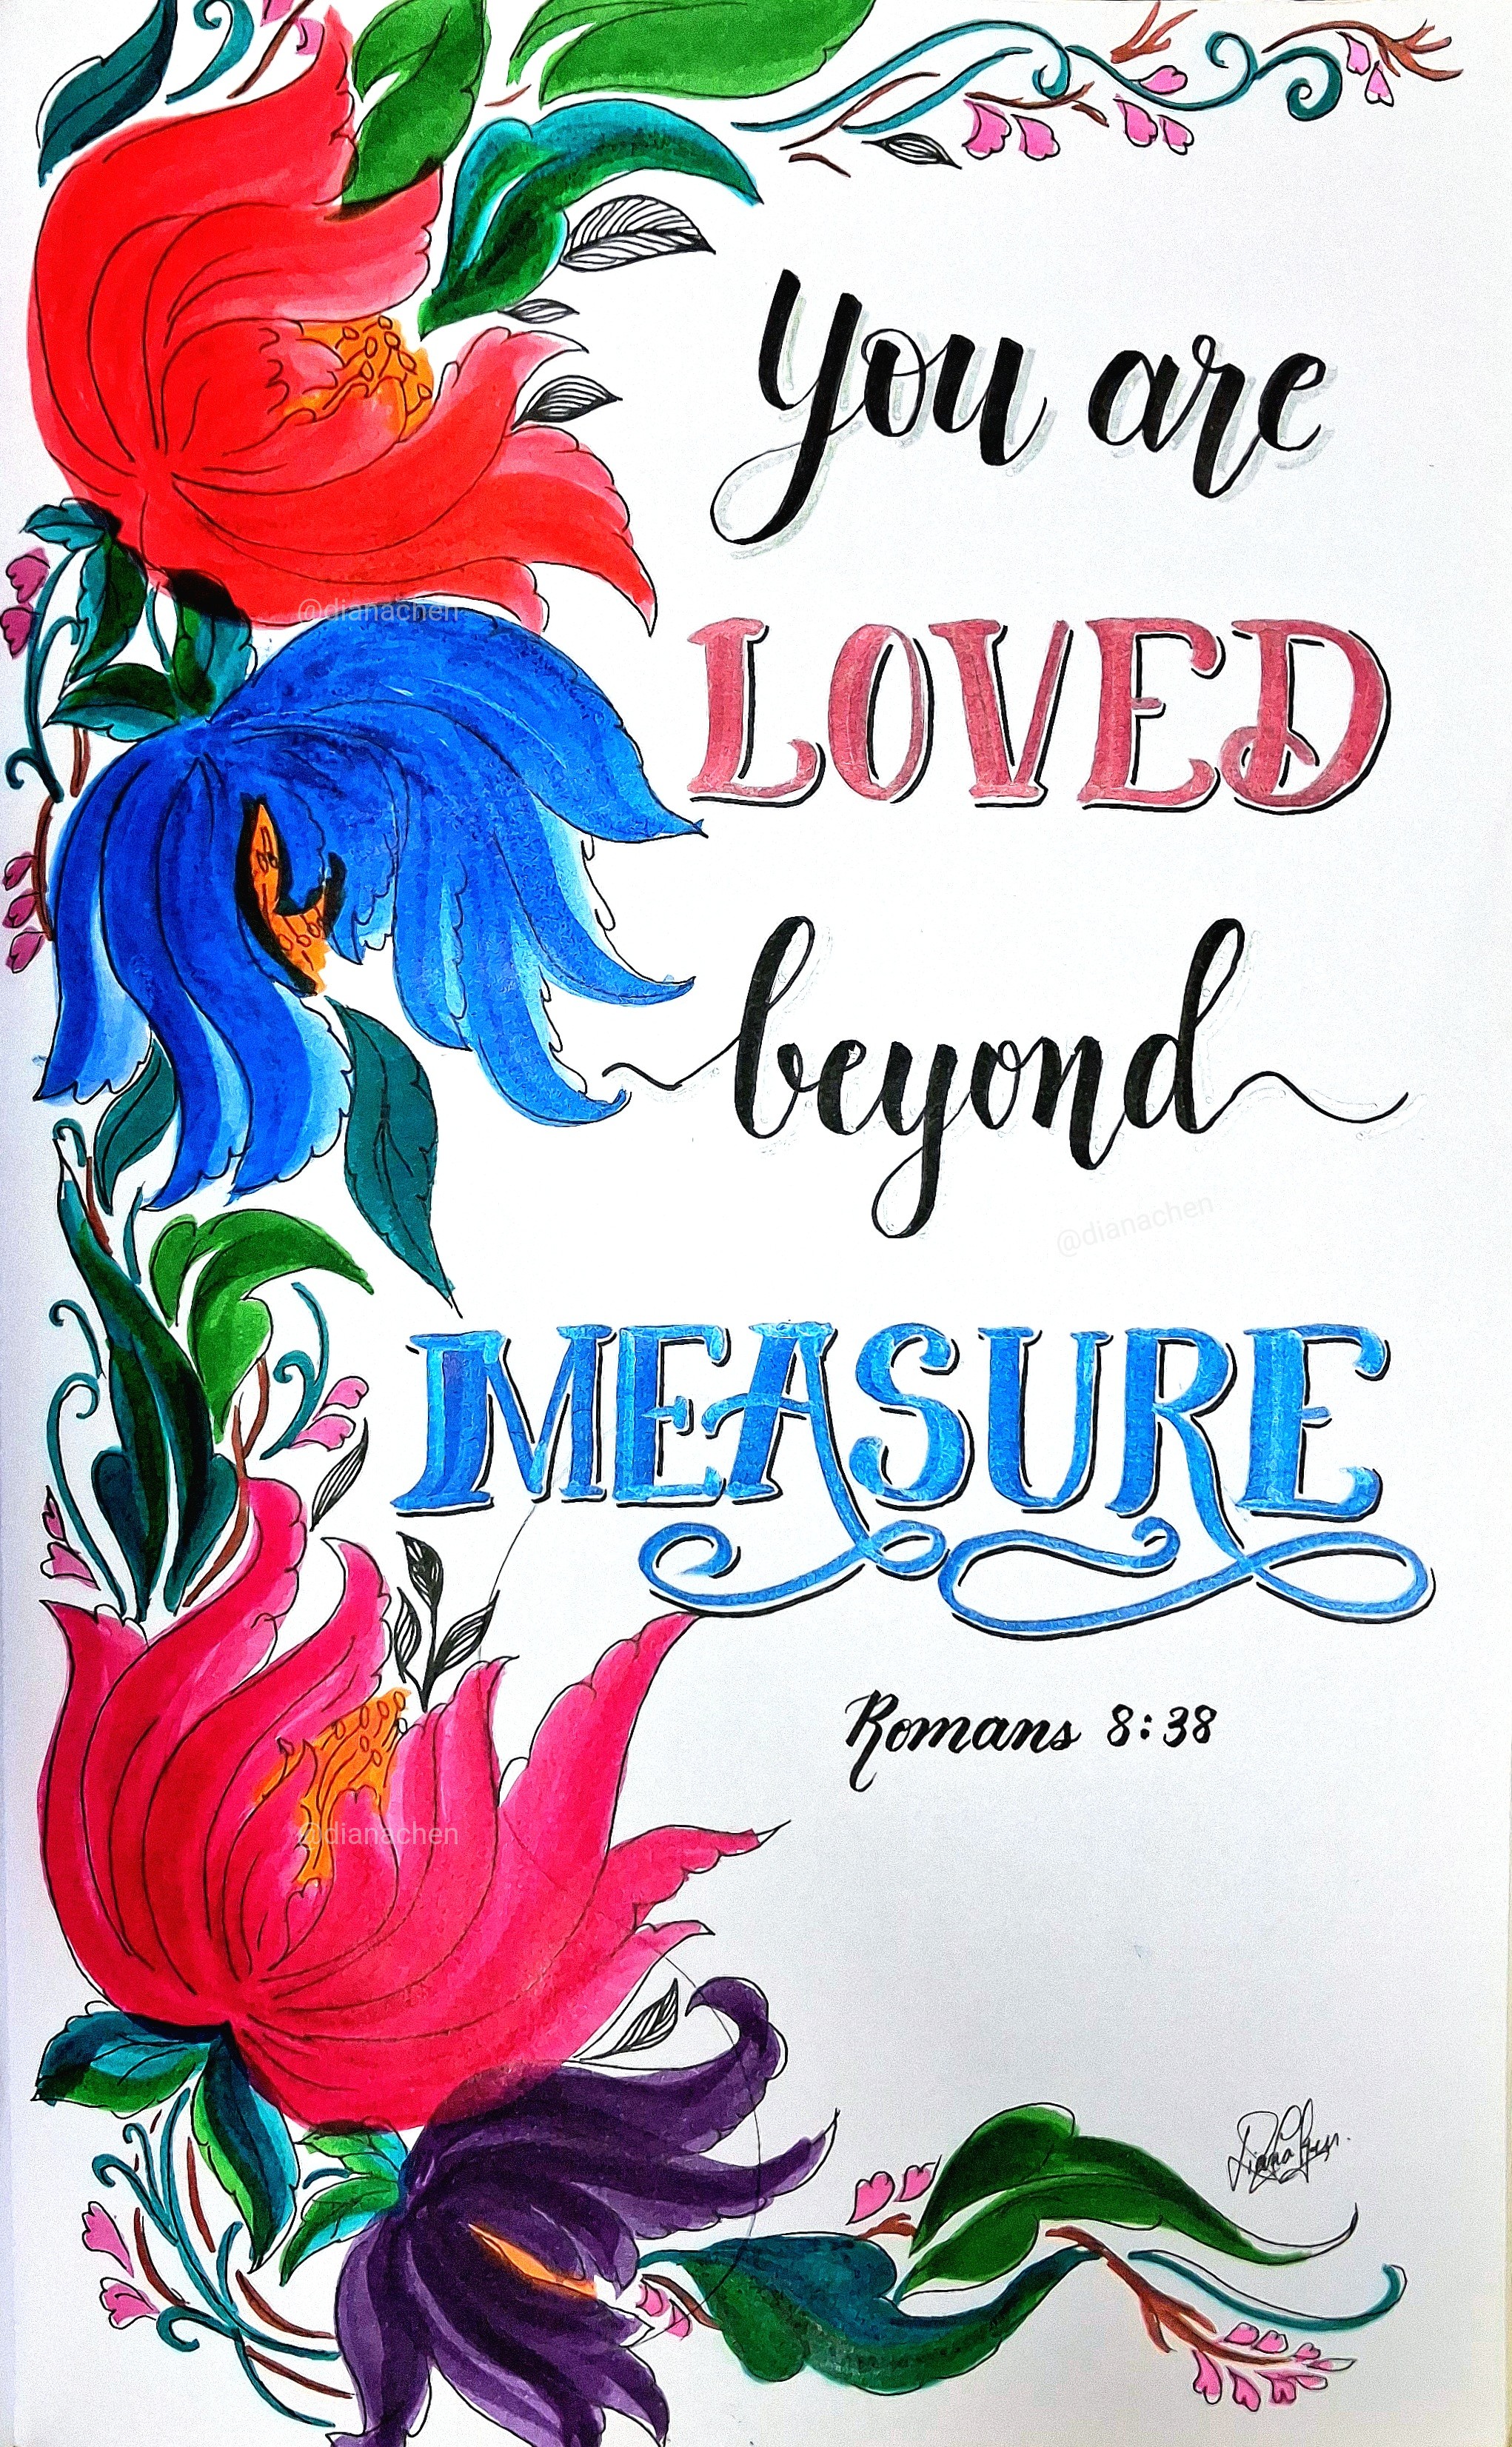 you are
LOVED
@dianachen
beyond
@dianachen
MEASURE
Romans 8:38
@dianachen